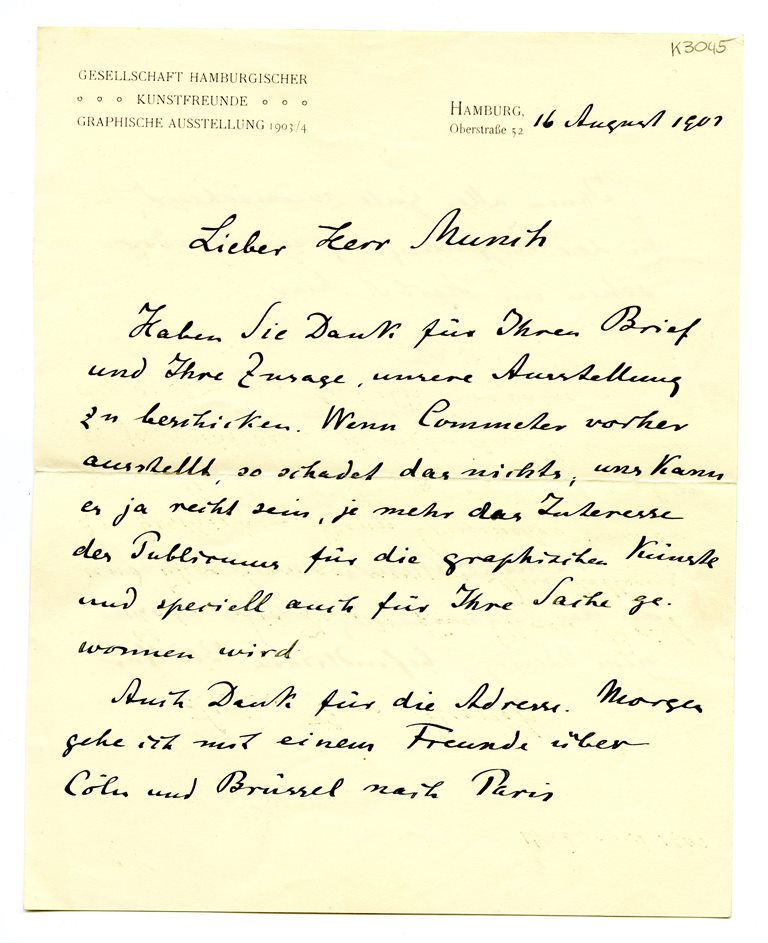 K3045
GESELLSCHAFT HAMBURGISCHER
° ° ° KUNSTFREUNDE ° ° °
GRAPHISCHE AUSSTELLUNG 1903/4
HAMBURG,
Oberstraße 52
16 August 1903
Lieber Herr Munch
Haben Sie Dank für Ihren Brief
und Ihre Zusage, unsere Ausstellung
zu beschicken. Wenn Commeter vorher
ausstellt, so schadet das nichts, uns kann
es ja recht sein, je mehr das Interesse
des Publicums für die graphischen Künste
und speciell auch für Ihre Sache ge-
wonnen wird
Auch Dank für die Adresse. Morgen
gehe ich mit einem Freunde über
Cöln und Brüssel nach Paris